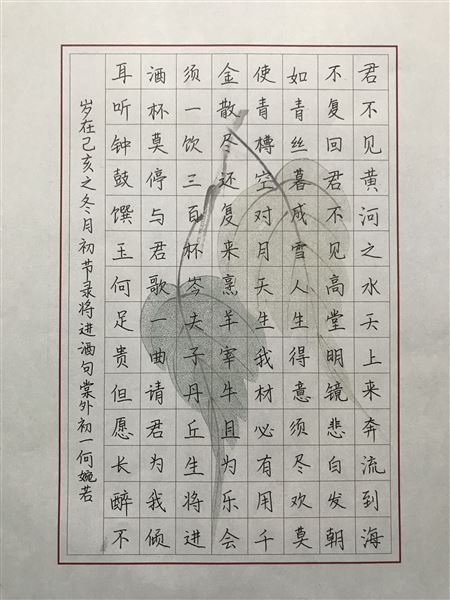 君不见黄河之水天上来奔流到海
不复回君不见高堂明镜悲白发朝
如青丝暮成雪人生得意须尽欢莫
使青樽空对月天生我材必有用千
金散尽还复来烹羊宰牛且为乐会
须一饮三百杯岑夫子丹丘生将进
酒杯莫停与君歌一曲请君为我倾
耳听钟鼓馔玉何足贵但愿长醉不
岁在己亥之冬月初节录将进酒句棠外初一何婉若